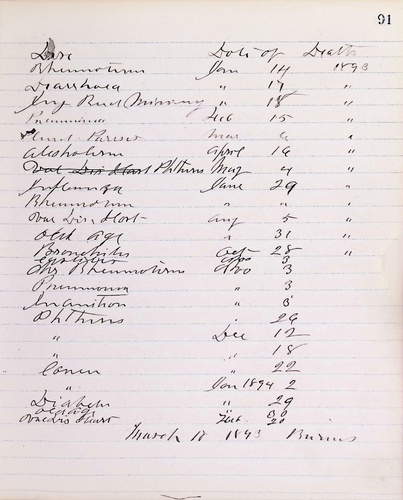 91
Dise Date of Death
Rheumatism Jan 14 1893
Diarrhoea " 17 "
" 18 "
Pneumonia Feb 15 "
Mar "
Alcoholism April 16 "
Val Dis Hart Phthisis May 4 "
Influenza June 29 "
Rheumatism " " "
Val Dis Hart Aug 5 "
Old Age " 31 "
Bronchitis Oct 28 "
3
Chr Rheumatism Nov 3
Pneumonia " 3
Inanition "
Phthisis 29
" Dec 12
" " 18
Cancer " 22
" Jan 1894 2
Diabetes " 29
Old age Feb
Valv Dis Heart 20
March 18 1893 Burns